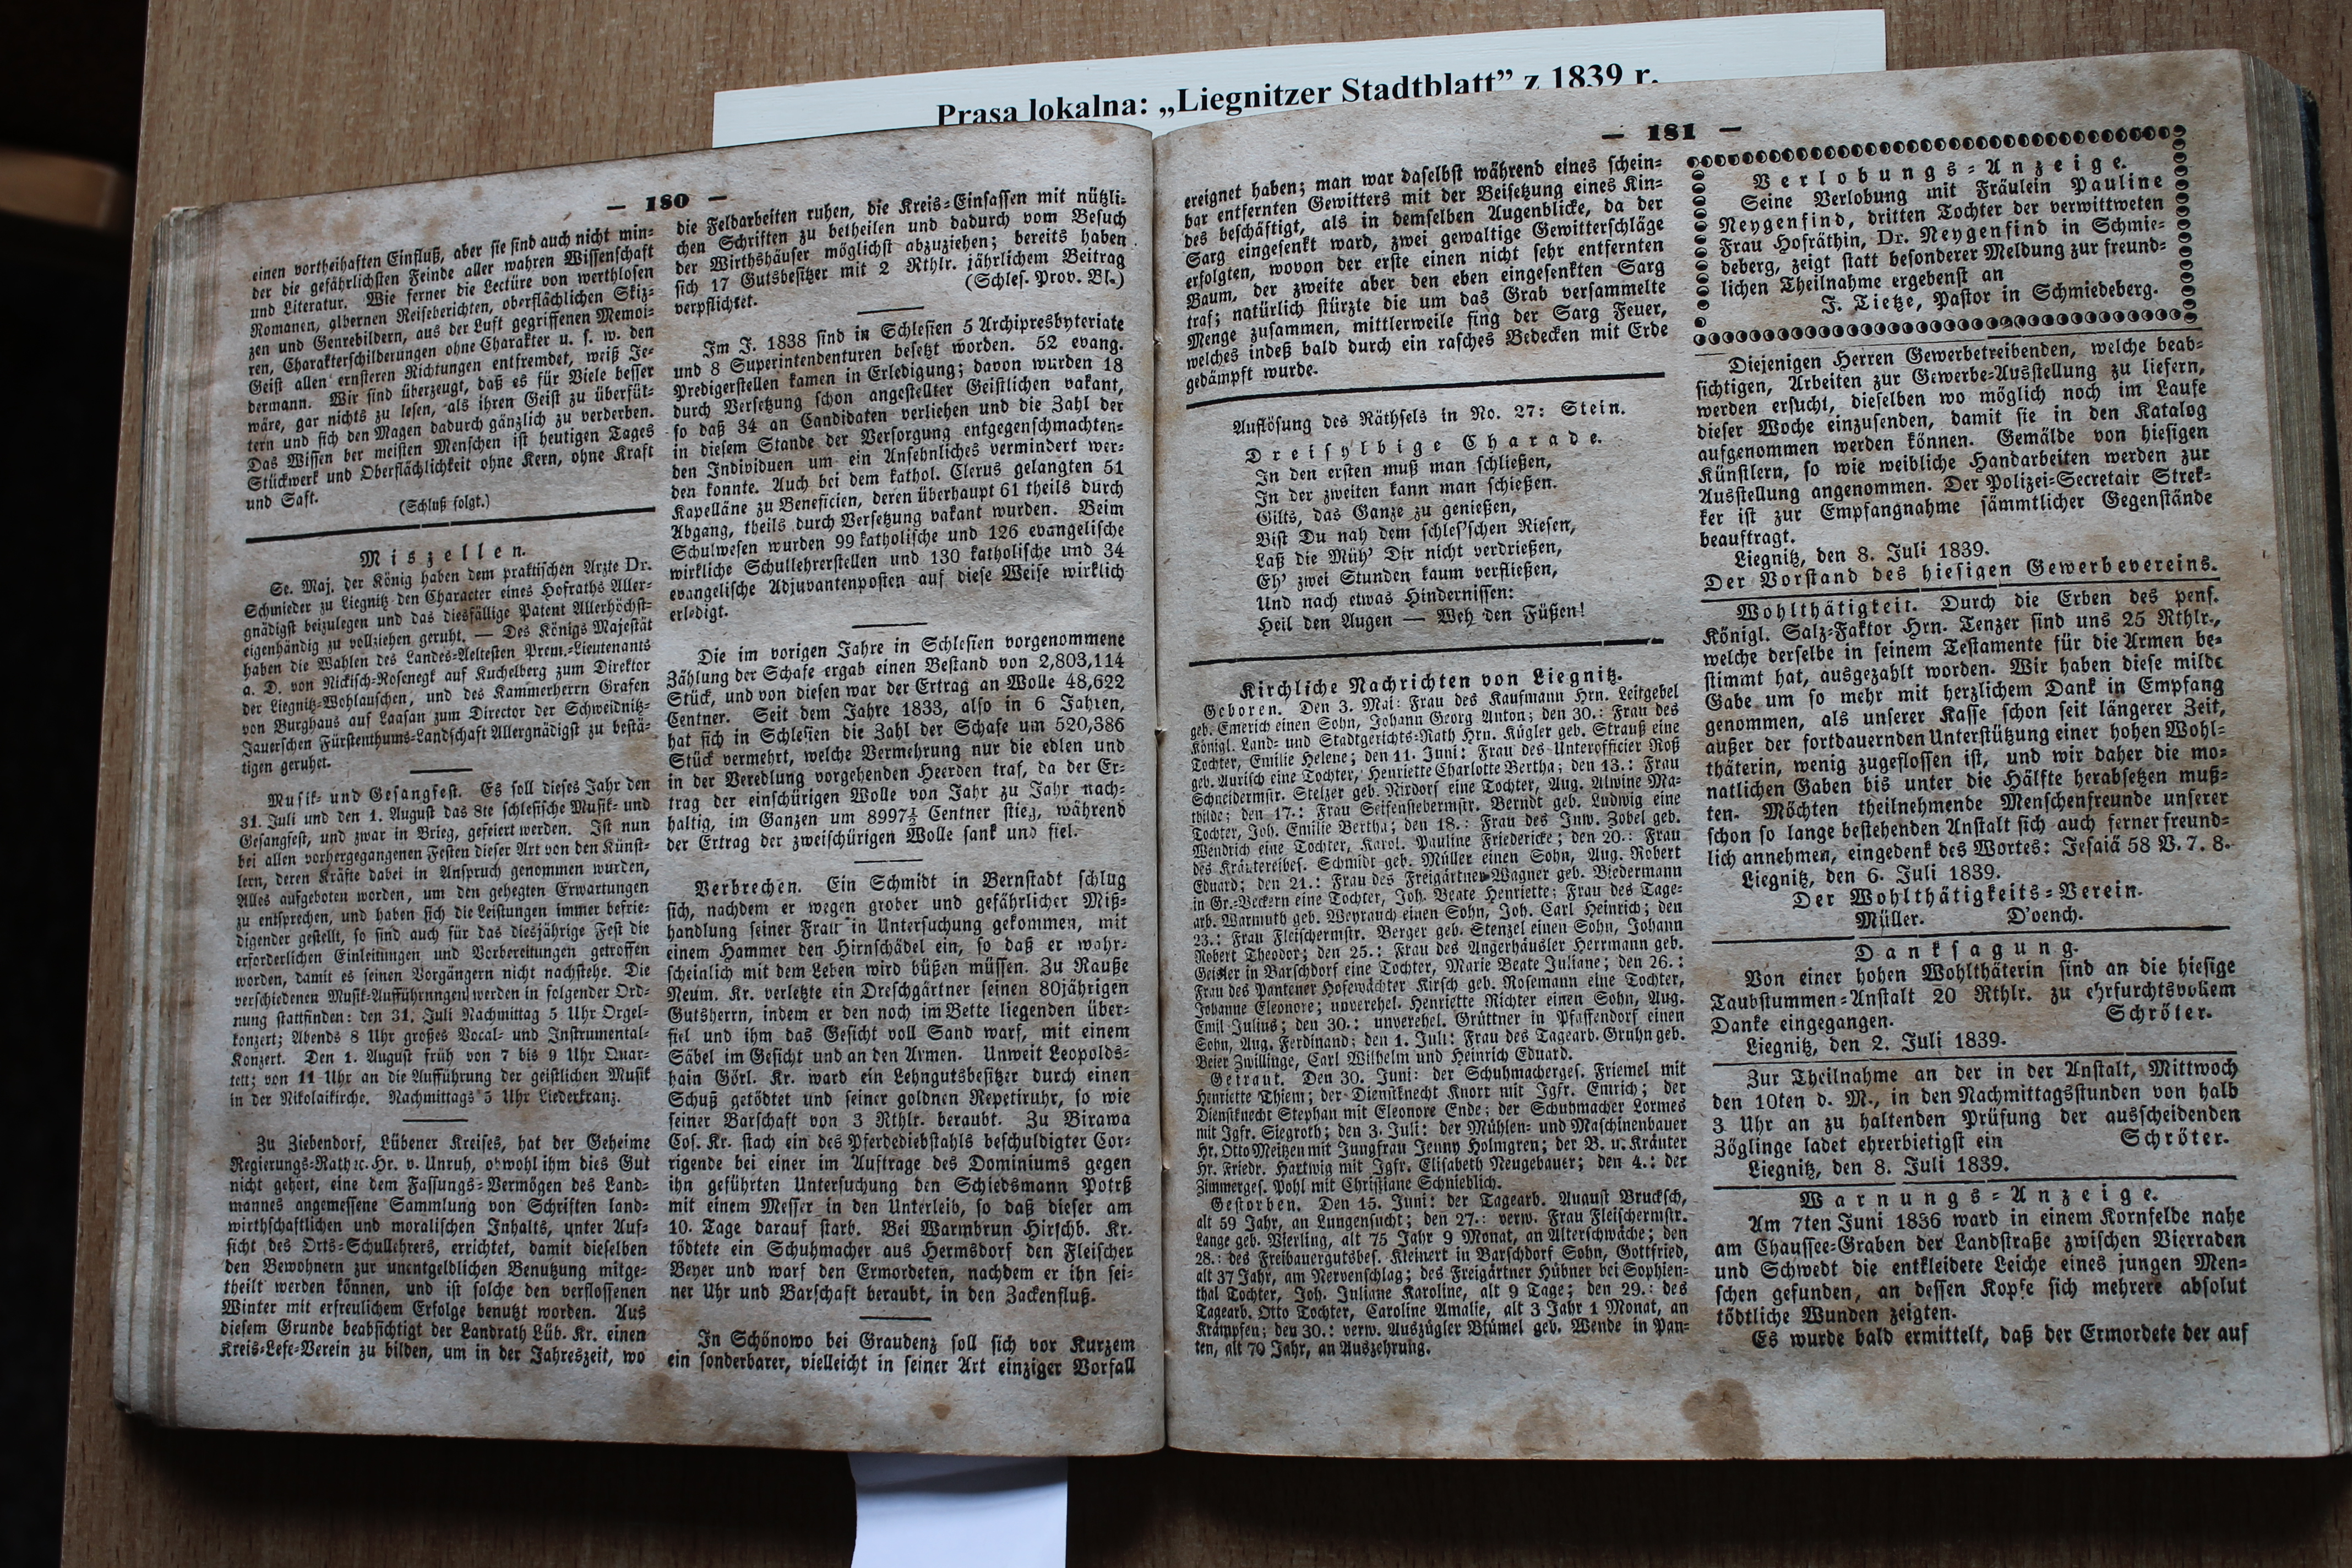 Prasa lokalna: „Liegnitzer Stadtblatt” z 1839 r.
— 180 —
einen vortheihaften Einfluß, aber sie sind auch nicht min-
der die gefährlichsten Feinde aller wahren Wissenschaft
und Literatur. Wie ferner die Lectüre von werthlosen
Romanen, albernen Reiseberichten, oberflächlichen Skiz-
zen und Genrebildern, aus der Luft gegriffenen Memoi-
ren, Charakterschilderungen ohne Charakter u. s. w. den
Geist allen ernsteren Richtungen entfremdet, weiß Je-
dermann. Wir sind überzeugt, daß es für Viele besser
wäre, gar nichts zu lesen, als ihren Geist zu überfül-
tern und sich den Magen dadurch gänzlich zu verderben.
Das Wissen der meisten Menschen ist heutigen Tages
Stückwerk und Oberflächlichkeit ohne Kern, ohne Kraft
und Saft.
(Schluß folgt.)
Miszellen.
Se. Maj. der König haben dem praktischen Arzte Dr.
Schmieder zu Liegnitz den Character eines Hofraths Aller-
gnädigst beizulegen und das diesfällige Patent Allerhöchst-
eigenhändig zu vollziehen geruht. — Des Königs Majestät
haben die Wahlen des Landes-Aeltesten Prem.-Lieutenants
a. D. von Nickisch-Rosenegk auf Kuchelberg zum Direktor
der Liegnitz-Wohlauschen, und des Kammerherrn Grafen
von Burghaus auf Laasan zum Director der Schweidnitz-
Jauerschen Fürstenthums-Landschaft Allergnädigst zu bestä-
tigen geruhet.
Musik- und Gesangfest. Es soll dieses Jahr den
31. Juli und den 1. August das 8te schlesische Musik- und
Gesangfest, und zwar in Brieg, gefeiert werden. Ist nun
bei allen vorhergegangenen Festen dieser Art von den Künst-
lern, deren Kräfte dabei in Anspruch genommen wurden,
Alles aufgeboten worden, um den gehegten Erwartungen
zu entsprechen, und haben sich die Leistungen immer befrie-
digender gestellt, so sind auch für das diesjährige Fest die
erforderlichen Einleitungen und Vorbereitungen getroffen
worden, damit es seinen Vorgängern nicht nachstehe. Die
verschiedenen Musik-Aufführnngen werden in folgender Ord-
nung stattfinden: den 31. Juli Nachmittag 5 Uhr Orgel-
konzert; Abends 8 Uhr großes Vocal- und Instrumental-
Konzert. Den 1. August früh von 7 bis 9 Uhr Quar-
tett; von 11 Uhr an die Aufführung der geistlichen Musik
in der Nikolaikirche. Nachmittags 5 Uhr Liederkranz.
Zu Ziebendorf, Lübener Kreises, hat der Geheime
Regierungs-Rath ec. Hr. v. Unruh, obwohl ihm dies Gut
nicht gehört, eine dem Fassungs-Vermögen des Land-
mannes angemessene Sammlung von Schriften land-
wirthschaftlichen und moralischen Inhalts, unter Auf-
sicht des Orts-Schullehrers, errichtet, damit dieselben
den Bewohnern zur unentgeldlichen Benutzung mitge-
theilt werden können, und ist solche den verflossenen
Winter mit erfreulichem Erfolge benutzt worden. Aus
diesem Grunde beabsichtigt der Landrath Lüb. Kr. einen
Kreis-Lese-Verein zu bilden, um in der Jahreszeit, wo
die Feldarbeiten ruhen, die Kreis-Einsassen mit nützli-
chen Schriften zu betheilen und dadurch vom Besuch
der Wirthshäuser möglichst abzuziehen; bereits haben
sich 17 Gutsbesitzer mit 2 Rthlr. jährlichem Beitrag
verpflichtet. (Schles. Prov. Bl.)
Im J. 1838 sind in Schlesien 5 Archipresbyteriate
und 8 Superintendenturen besetzt worden. 52 evang.
Predigerstellen kamen in Erledigung; davon wurden 18
durch Versetzung schon angestellter Geistlichen vakant,
so daß 34 an Candidaten verliehen und die Zahl der
in diesem Stande der Versorgung entgegenschmachten-
den Individuen um ein Ansehnliches vermindert wer-
den konnte. Auch bei dem kathol. Clerus gelangten 51
Kapelläne zu Beneficien, deren überhaupt 61 theils durch
Abgang, theils durch Versetzung vakant wurden. Beim
Schulwesen wurden 99 katholische und 126 evangelische
wirkliche Schullehrerstellen und 130 katholische und 34
evangelische Adjuvantenposten auf diese Weise wirklich
erledigt.
Die im vorigen Jahre in Schlesien vorgenommene
Zählung der Schafe ergab einen Bestand von 2,803,114
Stück, und von diesen war der Ertrag an Wolle 48,622
Centner. Seit dem Jahre 1833, also in 6 Jahren,
hat sich in Schlesien die Zahl der Schafe um 520,386
Stück vermehrt, welche Vermehrung nur die edlen und
in der Veredlung vorgehenden Heerden traf, da der Er-
trag der einschürigen Wolle von Jahr zu Jahr nach-
haltig, im Ganzen um 8997½ Centner stieg, während
der Ertrag der zweischürigen Wolle sank und fiel.
Verbrechen. Ein Schmidt in Bernstadt schlug
sich, nachdem er wegen grober und gefährlicher Miß-
handlung seiner Frau in Untersuchung gekommen, mit
einem Hammer den Hirnschädel ein, so daß er wahr-
scheinlich mit dem Leben wird büßen müssen. Zu Rauße
Neum. Kr. verletzte ein Dreschgärtner seinen 80jährigen
Gutsherrn, indem er den noch im Bette liegenden über-
fiel und ihm das Gesicht voll Sand warf, mit einem
Säbel im Gesicht und an den Armen. Unweit Leopolds-
hain Görl. Kr. ward ein Lehngutsbesitzer durch einen
Schuß getödtet und seiner goldnen Repetiruhr, so wie
seiner Barschaft von 3 Rthlr. beraubt. Zu Birawa
Cos. Kr. stach ein des Pferdediebstahls beschuldigter Cor-
rigende bei einer im Auftrage des Dominiums gegen
ihn geführten Untersuchung den Schiedsmann Potrß
mit einem Messer in den Unterleib, so daß dieser am
10. Tage darauf starb. Bei Warmbrun Hirschb. Kr.
tödtete ein Schuhmacher aus Hermsdorf den Fleischer
Beyer und warf den Ermordeten, nachdem er ihn sei-
ner Uhr und Barschaft beraubt, in den Zackenfluß.
In Schönowo bei Graudenz soll sich vor Kurzem
ein sonderbarer, vielleicht in seiner Art einziger Vorfall
— 181 —
ereignet haben; man war daselbst während eines schein-
bar entfernten Gewitters mit der Beisetzung eines Kin-
des beschäftigt, als in demselben Augenblicke, da der
Sarg eingesenkt ward, zwei gewaltige Gewitterschläge
erfolgten, wovon der erste einen nicht sehr entfernten
Baum, der zweite aber den eben eingesenkten Sarg
traf; natürlich stürzte die um das Grab versammelte
Menge zusammen, mittlerweile fing der Sarg Feuer,
welches indeß bald durch ein rasches Bedecken mit Erde
gedämpft wurde.
Auflösung des Räthsels in No. 27: Stein.
Dreisylbige Charade.
In den ersten muß man schließen,
In der zweiten kann man schießen.
Gilts, das Ganze zu genießen,
Bist Du nah dem schles'schen Riesen,
Laß die Müh' Dir nicht verdrießen,
Eh' zwei Stunden kaum verfließen,
Und nach etwas Hindernissen:
Heil den Augen — Weh den Füßen!
Kirchliche Nachrichten von Liegnitz.
Geboren. Den 3. Mai: Frau des Kaufmann Hrn. Leitgebel
geb. Emerich einen Sohn, Johann Georg Anton; den 30.: Frau des
Königl. Land- und Stadtgerichts-Rath Hrn. Kügler geb. Strauß eine
Tochter, Emilie Helene; den 11. Juni: Frau des Unterofficier Roß
geb. Aurisch eine Tochter, Henriette Charlotte Bertha; den 13.: Frau
Schneidermstr. Stelzer geb. Nixdorf eine Tochter, Aug. Alwine Ma-
thilde; den 17.: Frau Seifensiedermstr. Berndt geb. Ludwig eine
Tochter, Joh. Emilie Bertha; den 18.: Frau des Inw. Zobel geb.
Wendrich eine Tochter, Karol. Pauline Friedericke; den 20.: Frau
des Kräutereibes. Schmidt geb. Müller einen Sohn, Aug. Robert
Eduard; den 21.: Frau des Freigärtner Wagner geb. Biedermann
in Gr.-Beckern eine Tochter, Joh. Beate Henriette; Frau des Tage-
arb. Warmuth geb. Weyrauch einen Sohn, Joh. Carl Heinrich; den
23.: Frau Fleischermstr. Berger geb. Stenzel einen Sohn, Johann
Robert Theodor; den 25.: Frau des Angerhäusler Herrmann geb.
Geisler in Barschdorf eine Tochter, Marie Beate Juliane; den 26.:
Frau des Pantener Hofewächter Kirsch geb. Rosemann eine Tochter,
Johanne Eleonore; unverehel. Henriette Richter einen Sohn, Aug.
Emil Julius; den 30.: unverehel. Grüttner in Pfaffendorf einen
Sohn, Aug. Ferdinand; den 1. Juli: Frau des Tagearb. Gruhn geb.
Beier Zwillinge, Carl Wilhelm und Heinrich Eduard.
Getraut. Den 30. Juni: der Schuhmacherges. Friemel mit
Henriette Thiem; der Dienstknecht Knorr mit Jgfr. Emrich; der
Dienstknecht Stephan mit Eleonore Ende; der Schuhmacher Lormes
mit Jgfr. Siegroth; den 3. Juli: der Mühlen- und Maschinenbauer
Hr. Otto Meitzen mit Jungfrau Jenny Holmgren; der B. u. Kräuter
Hr. Friedr. Hartwig mit Jgfr. Elisabeth Neugebauer; den 4.: der
Zimmerges. Pohl mit Christiane Schnieblich.
Gestorben. Den 15. Juni: der Tagearb. August Brucksch,
alt 59 Jahr, an Lungensucht; den 27.: verw. Frau Fleischermstr.
Lange geb. Vierling, alt 75 Jahr 9 Monat, an Alterschwäche; den
28.: des Freibauergutsbes. Kleinert in Barschdorf Sohn, Gottfried,
alt 37 Jahr, am Nervenschlag; des Freigärtner Hübner bei Sophien-
thal Tochter, Joh. Juliane Karoline, alt 9 Tage; den 29.: des
Tagearb. Otto Tochter, Caroline Amalie, alt 3 Jahr 1 Monat, an
Krämpfen; den 30.: verw. Auszügler Blümel geb. Wende in Pan-
ten, alt 70 Jahr, an Auszehrung.
Verlobungs-Anzeige.
Seine Verlobung mit Fräulein Pauline
Neygenfind, dritten Tochter der verwittweten
Frau Hofräthin, Dr. Neygenfind in Schmie-
deberg, zeigt statt besonderer Meldung zur freund-
lichen Theilnahme ergebenst an
J. Tietze, Pastor in Schmiedeberg.
Diejenigen Herren Gewerbetreibenden, welche beab-
sichtigen, Arbeiten zur Gewerbe-Ausstellung zu liefern,
werden ersucht, dieselben wo möglich noch im Laufe
dieser Woche einzusenden, damit sie in den Katalog
aufgenommen werden können. Gemälde von hiesigen
Künstlern, so wie weibliche Handarbeiten werden zur
Ausstellung angenommen. Der Polizei-Secretair Strek-
ker ist zur Empfangnahme sämmtlicher Gegenstände
beauftragt.
Liegnitz, den 8. Juli 1839.
Der Vorstand des hiesigen Gewerbevereins.
Wohlthätigkeit. Durch die Erben des pens.
Königl. Salz-Faktor Hrn. Tenzer sind uns 25 Rthlr.,
welche derselbe in seinem Testamente für die Armen be-
stimmt hat, ausgezahlt worden. Wir haben diese milde
Gabe um so mehr mit herzlichem Dank in Empfang
genommen, als unserer Kasse schon seit längerer Zeit,
außer der fortdauernden Unterstützung einer hohen Wohl-
thäterin, wenig zugeflossen ist, und wir daher die mo-
natlichen Gaben bis unter die Hälfte herabsetzen muß-
ten. Möchten theilnehmende Menschenfreunde unserer
schon so lange bestehenden Anstalt sich auch ferner freund-
lich annehmen, eingedenk des Wortes: Jesaiä 58 V. 7. 8.
Liegnitz, den 6. Juli 1839.
Der Wohlthätigkeits-Verein.
Müller. D'oench.
Danksagung.
Von einer hohen Wohlthäterin sind an die hiesige
Taubstummen-Anstalt 20 Rthlr. zu ehrfurchtsvollem
Danke eingegangen. Schröter.
Liegnitz, den 2. Juli 1839.
Zur Theilnahme an der in der Anstalt, Mittwoch
den 10ten d. M., in den Nachmittagsstunden von halb
3 Uhr an zu haltenden Prüfung der ausscheidenden
Zöglinge ladet ehrerbietigst ein Schröter.
Liegnitz, den 8. Juli 1839.
Warnungs-Anzeige.
Am 7ten Juni 1836 ward in einem Kornfelde nahe
am Chaussee-Graben der Landstraße zwischen Vierraden
und Schwedt die entkleidete Leiche eines jungen Men-
schen gefunden, an dessen Kopfe sich mehrere absolut
tödtliche Wunden zeigten.
Es wurde bald ermittelt, daß der Ermordete der auf